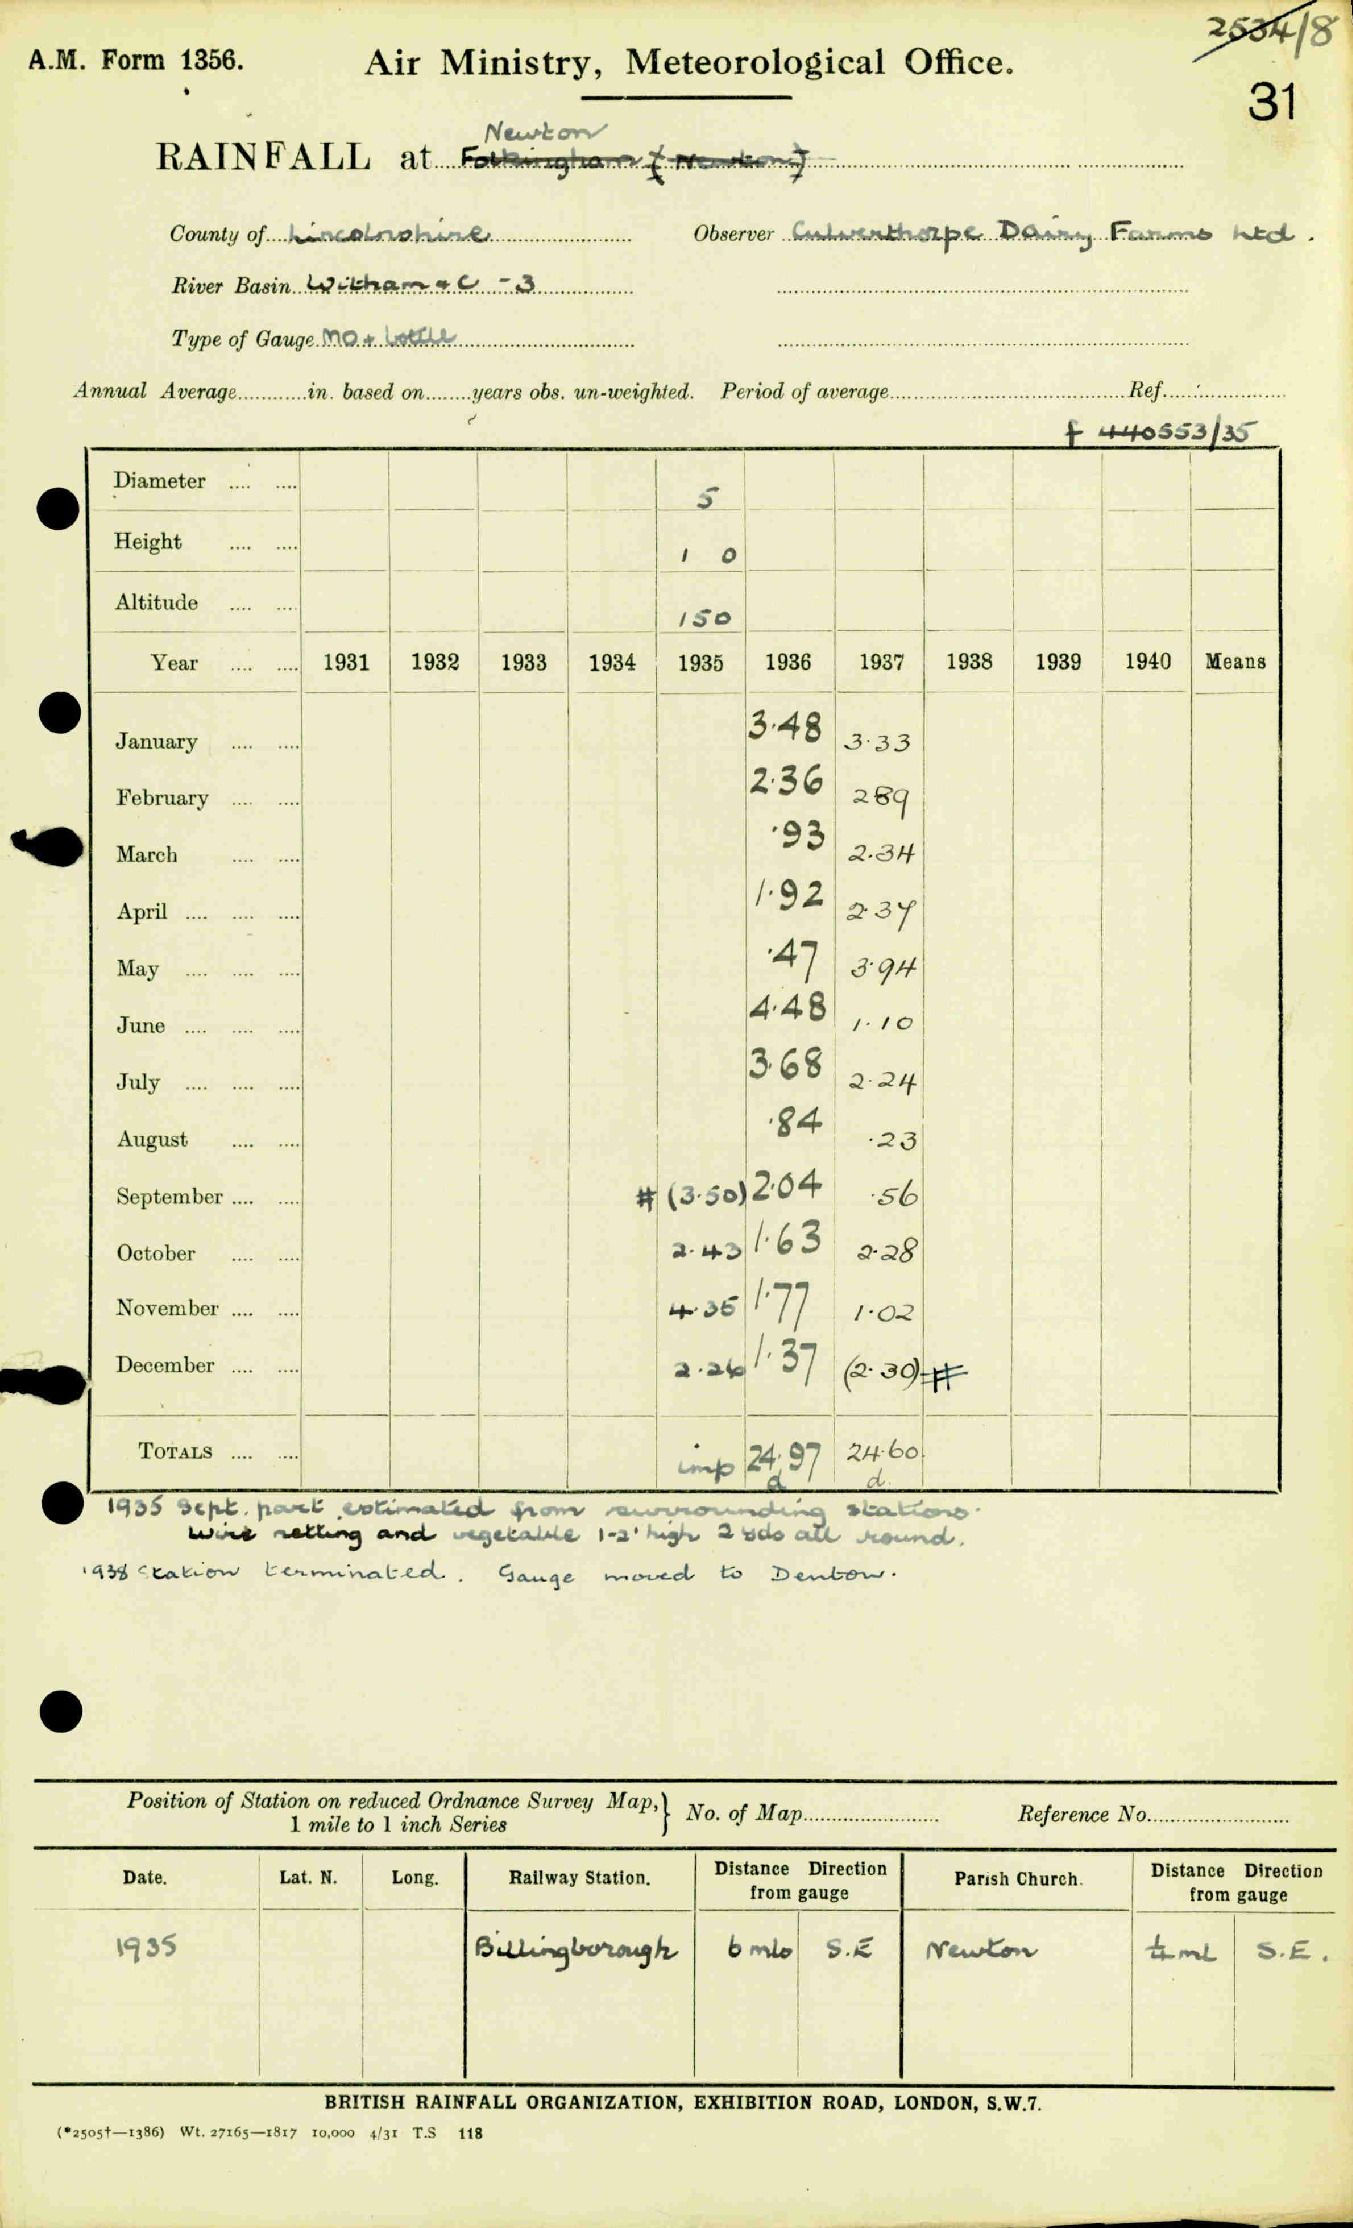 2534/8
A.M. Form 1356. Air Ministry, Meteorological Office.
31
Newton
RAINFALL at Folkingham (Newton)
County of Lincolnshire Observer Culverthorpe Dairy Farms Ltd.
River Basin Witham & C - 3
Type of Gauge MO + bottle
Annual Average............in. based on........years obs. un-weighted. Period of average........................................Ref.....................
f 440553/35
Diameter .... .... 5
Height .... .... 1 0
Altitude .... .... 150
Year .... .... 1931 1932 1933 1934 1935 1936 1937 1938 1939 1940 Means
January .... .... 3.48 3.33
February .... .... 2.36 2.89
March .... .... .93 2.34
April .... .... .... 1.92 2.37
May .... .... .... .47 3.94
June .... .... .... 4.48 1.10
July .... .... .... 3.68 2.24
August .... .... .84 .23
September .... .... # (3.50) 2.04 .56
October .... .... 2.43 1.63 2.28
November .... .... 4.35 1.77 1.02
December .... .... 2.26 1.37 (2.30) #
TOTALS .... .... imp 24.97 24.60
d d.
1935 Sept. part estimated from surrounding stations.
Wire netting and vegetable 1-2' high 2 yds all round.
1938 Station terminated. Gauge moved to Denton.
Position of Station on reduced Ordnance Survey Map,} No. of Map........................ Reference No.........................
1 mile to 1 inch Series
Date. Lat. N. Long. Railway Station. Distance Direction from gauge Parish Church. Distance Direction from gauge
1935 Billingborough 6 mls S.E Newton ¼ ml S.E.
BRITISH RAINFALL ORGANIZATION, EXHIBITION ROAD, LONDON, S.W.7.
(*2505†—1386) Wt. 27165—1817 10,000 4/31 T.S 118